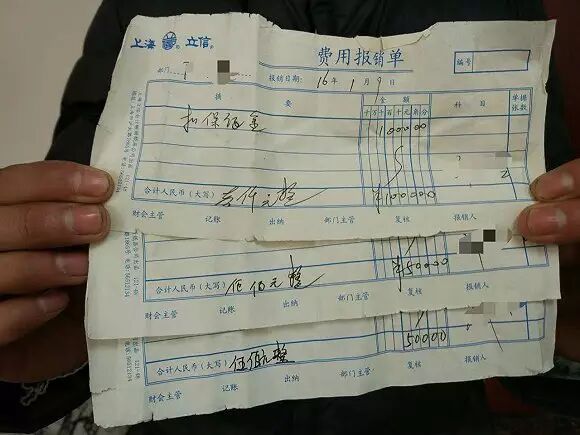 上海 立信 费用报销单
编号
部门
报销日期：16年1月9日
摘要 金额 科目 单据张数
十万千百十元角分
扣保证金 100000
合计人民币(大写) 壹仟元整 ¥100000
财会主管 记账 出纳 部门主管 复核 报销人
合计人民币(大写) 伍佰元整 ¥50000
财会主管 记账 出纳 部门主管 复核 报销人
合计人民币(大写) 伍佰元整 50000
财会主管 记账 出纳 部门主管 复核 报销人